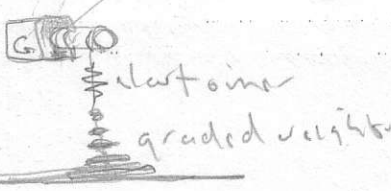 G
elastomer
graded weights